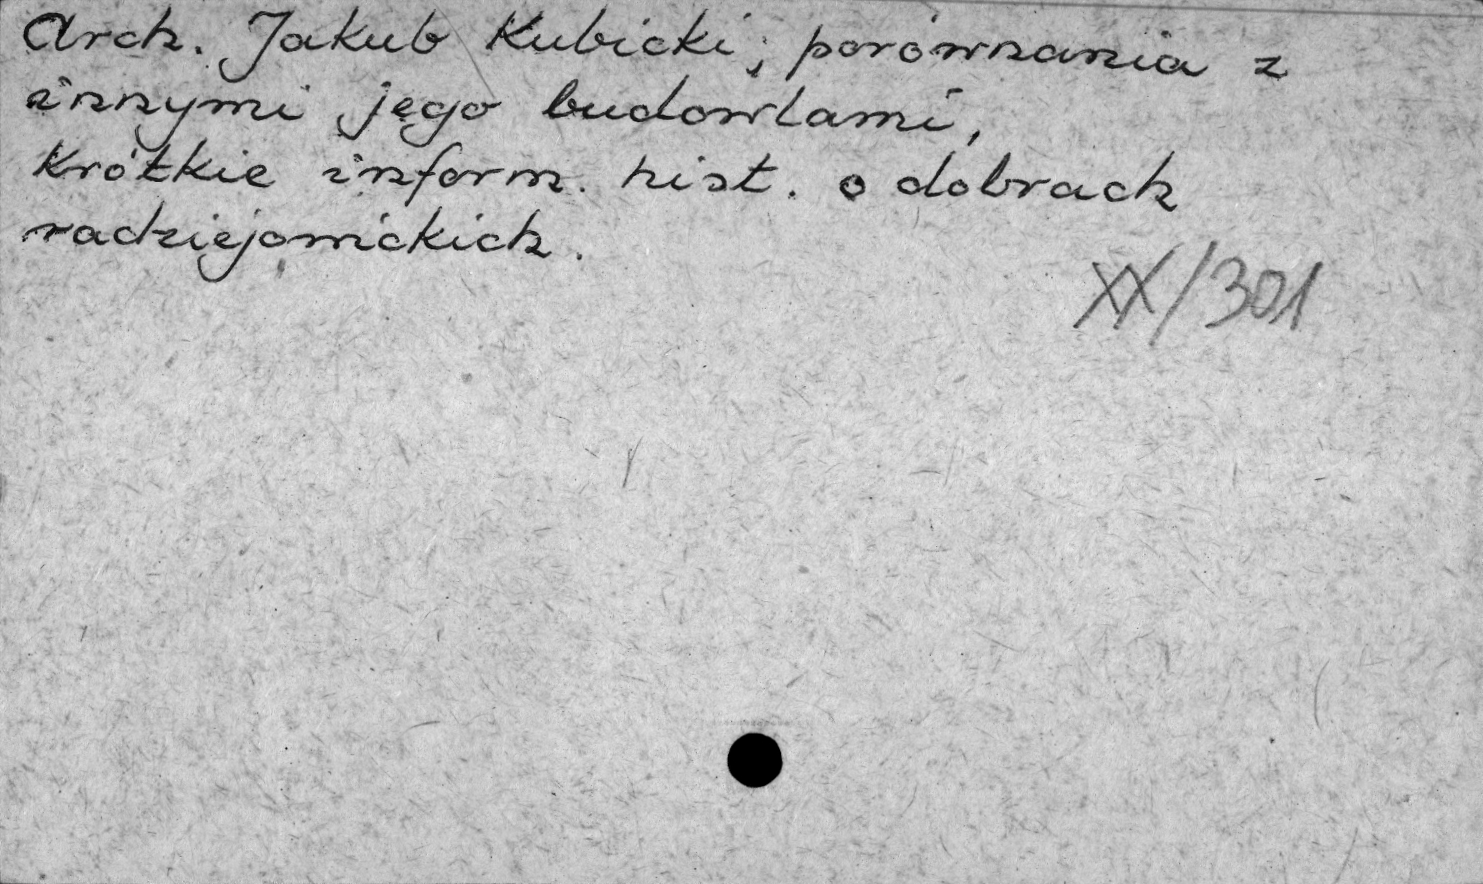 Arch. Jakub Kubicki; porównania z
innymi jego budowlami,
Krótkie inform. hist. o dobrach
radziejowickich.
XX/301